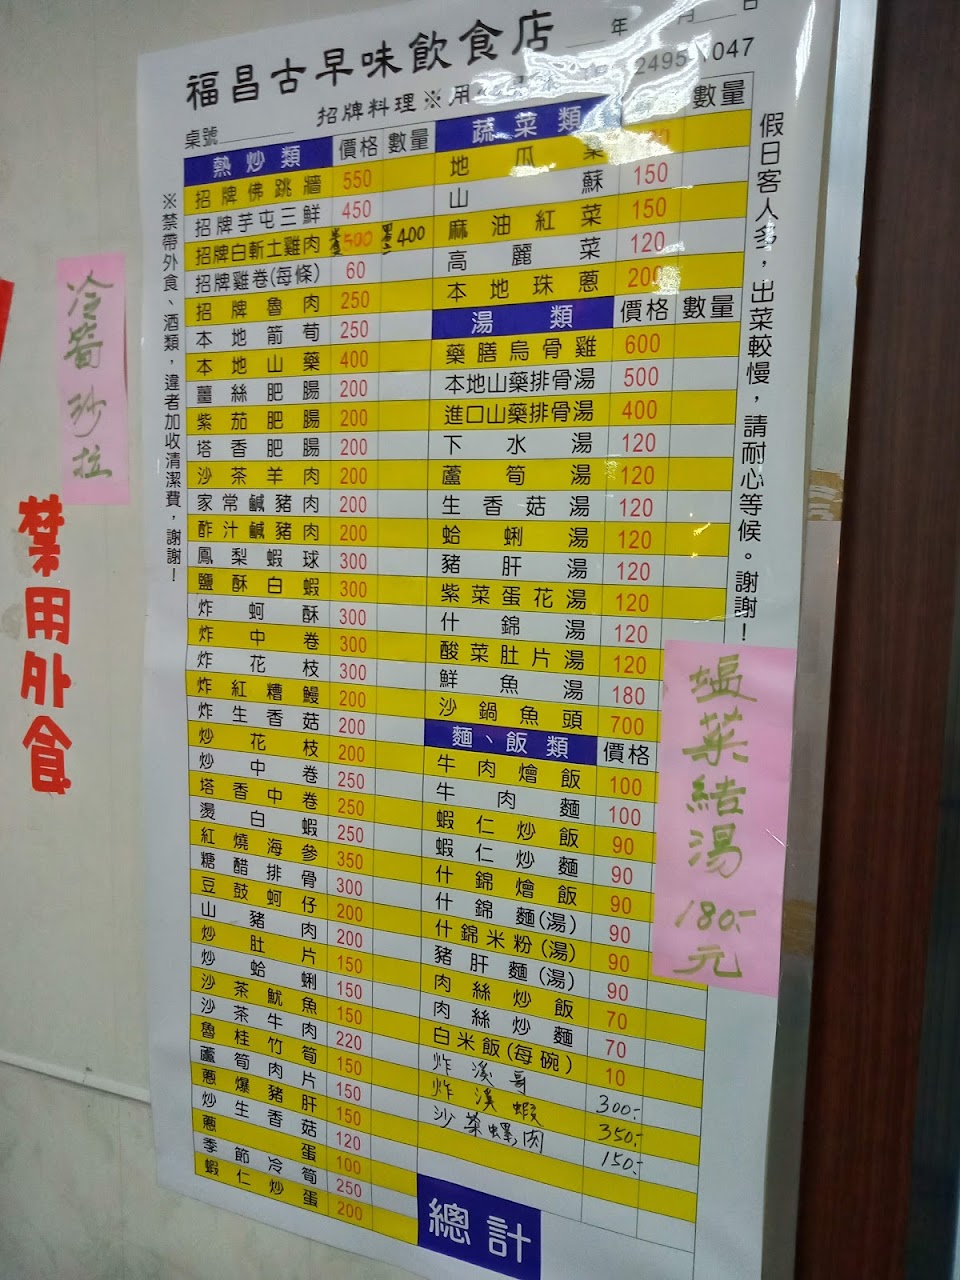 福昌古早味飲食店
年 月 日
桌號
招牌料理※用
047
熱炒類 價格 數量
招牌佛跳牆 550
招牌芋屯三鮮 450
招牌白斬土雞肉 500 400
招牌雞卷(每條) 60
招牌魯肉 250
本地箭筍 250
本地山藥 400
薑絲肥腸 200
紫茄肥腸 200
塔香肥腸 200
沙茶羊肉 200
家常鹹豬肉 200
酢汁鹹豬肉 200
鳳梨蝦球 300
鹽酥白蝦 300
炸蚵酥 300
炸中卷 300
炸花枝 300
炸紅糟鰻 200
炸生香菇 200
炒花枝 200
炒中卷 250
塔香中卷 250
燙白蝦 250
紅燒海參 350
糖醋排骨 300
豆鼓蚵仔 200
山豬肉 200
炒肚片 150
炒蛤蜊 150
沙茶魷魚 150
沙茶牛肉 220
魯桂竹筍 150
蘆筍肉片 150
蔥爆豬肝 150
炒生香菇 120
蔥蛋 100
季節冷筍 250
蝦仁炒蛋 200
蔬菜類 數量
地瓜葉
山蘇 150
麻油紅菜 150
高麗菜 120
本地珠蔥 200
湯類 價格 數量
藥膳烏骨雞 600
本地山藥排骨湯 500
進口山藥排骨湯 400
下水湯 120
蘆筍湯 120
生香菇湯 120
蛤蜊湯 120
豬肝湯 120
紫菜蛋花湯 120
什錦湯 120
酸菜肚片湯 120
鮮魚湯 180
沙鍋魚頭 700
麵、飯類 價格
牛肉燴飯 100
牛肉麵 100
蝦仁炒飯 90
蝦仁炒麵 90
什錦燴飯 90
什錦麵(湯) 90
什錦米粉(湯) 90
豬肝麵(湯) 90
肉絲炒飯 70
肉絲炒麵 70
白米飯(每碗) 10
炸溪哥 300.-
炸溪蝦 350.-
沙茶螺肉 150.-
總計
※禁帶外食、酒類，違者加收清潔費，謝謝！
假日客人多，出菜較慢，請耐心等候。謝謝！
冷筍沙拉
禁用外食
福菜結湯 180.-元